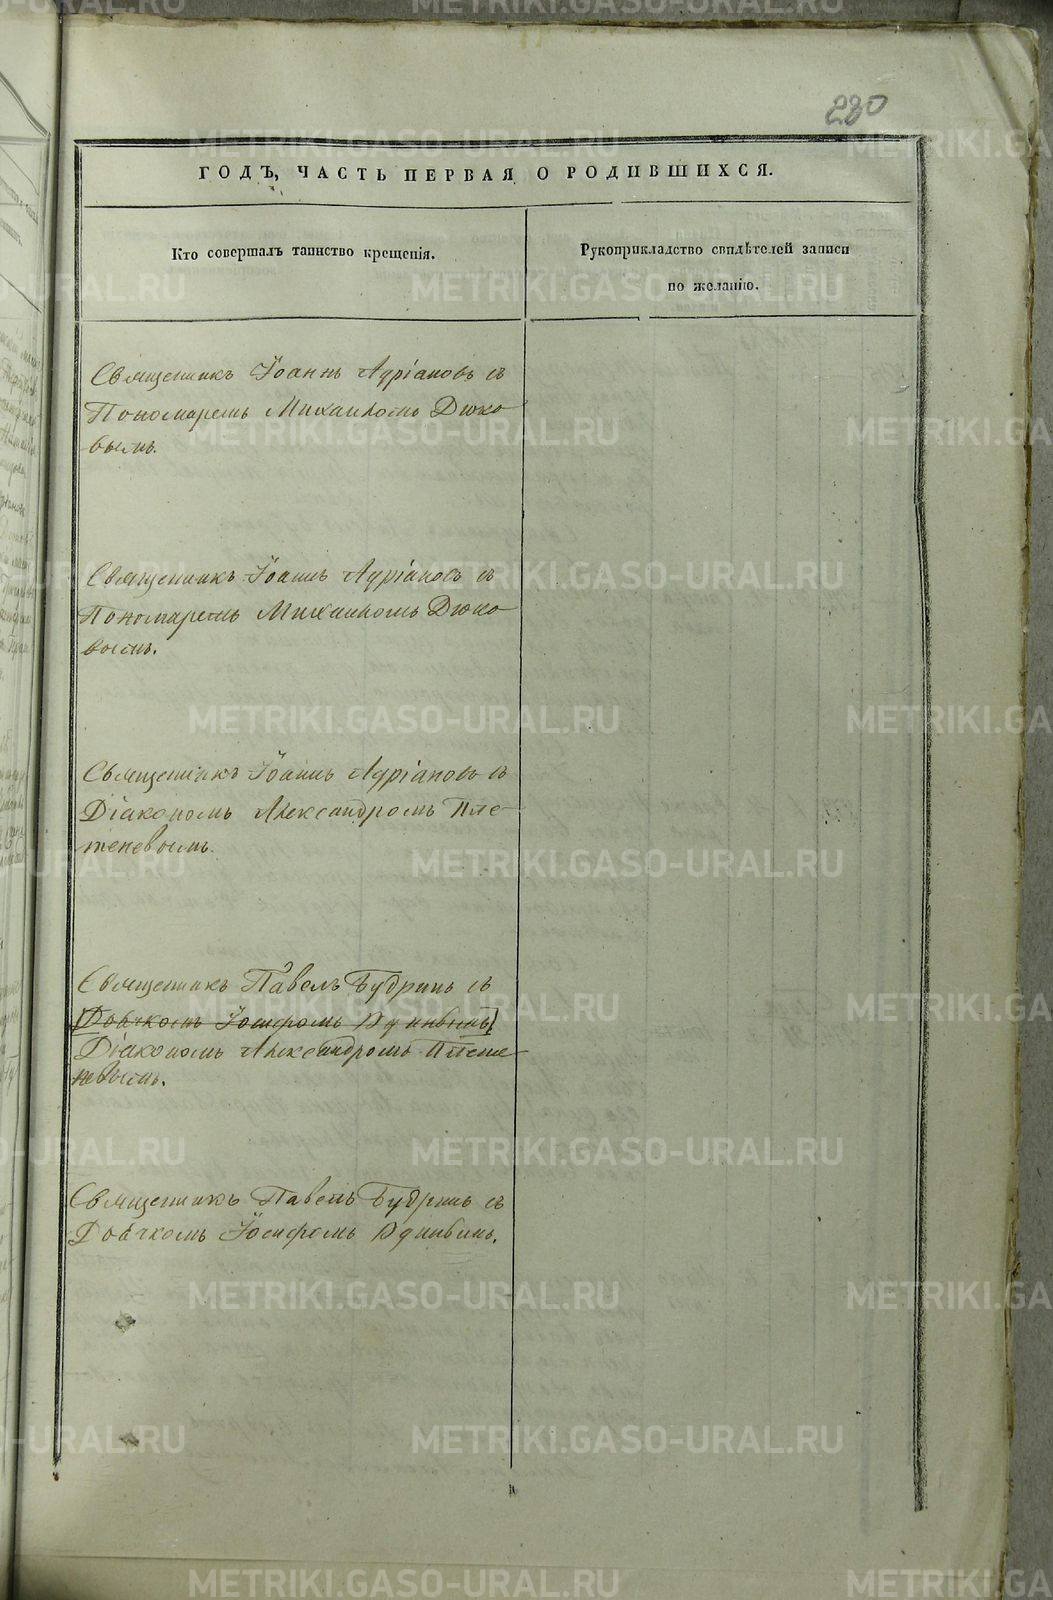 280
ГОДЪ, ЧАСТЬ ПЕРВАЯ О РОДИВШИХСЯ.
Кто совершалъ таинство крещенія.
Рукоприкладство свидѣтелей записи
по желанію.
Священникъ Іоаннъ Адріановъ съ
Пономаремъ Михаиломъ Дюко-
вымъ.
Священникъ Іоаннъ Адріановъ съ
Пономаремъ Михаиломъ Дюко-
вымъ.
Священникъ Іоаннъ Адріановъ съ
Діакономъ Александромъ Пле-
теневымъ.
Священникъ Павелъ Будринъ съ
Дьячкомъ Іосифомъ
Діакономъ Александромъ Плете-
невымъ.
Священникъ Павелъ Будринъ съ
Дьячкомъ Іосифомъ
METRIKI.GASO-URAL.RU